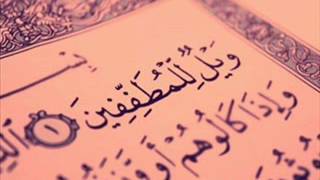 وَيْلٌ لِّلْمُطَفِّفِينَ ١
وَإِذَا كَالُوهُمْ أَو